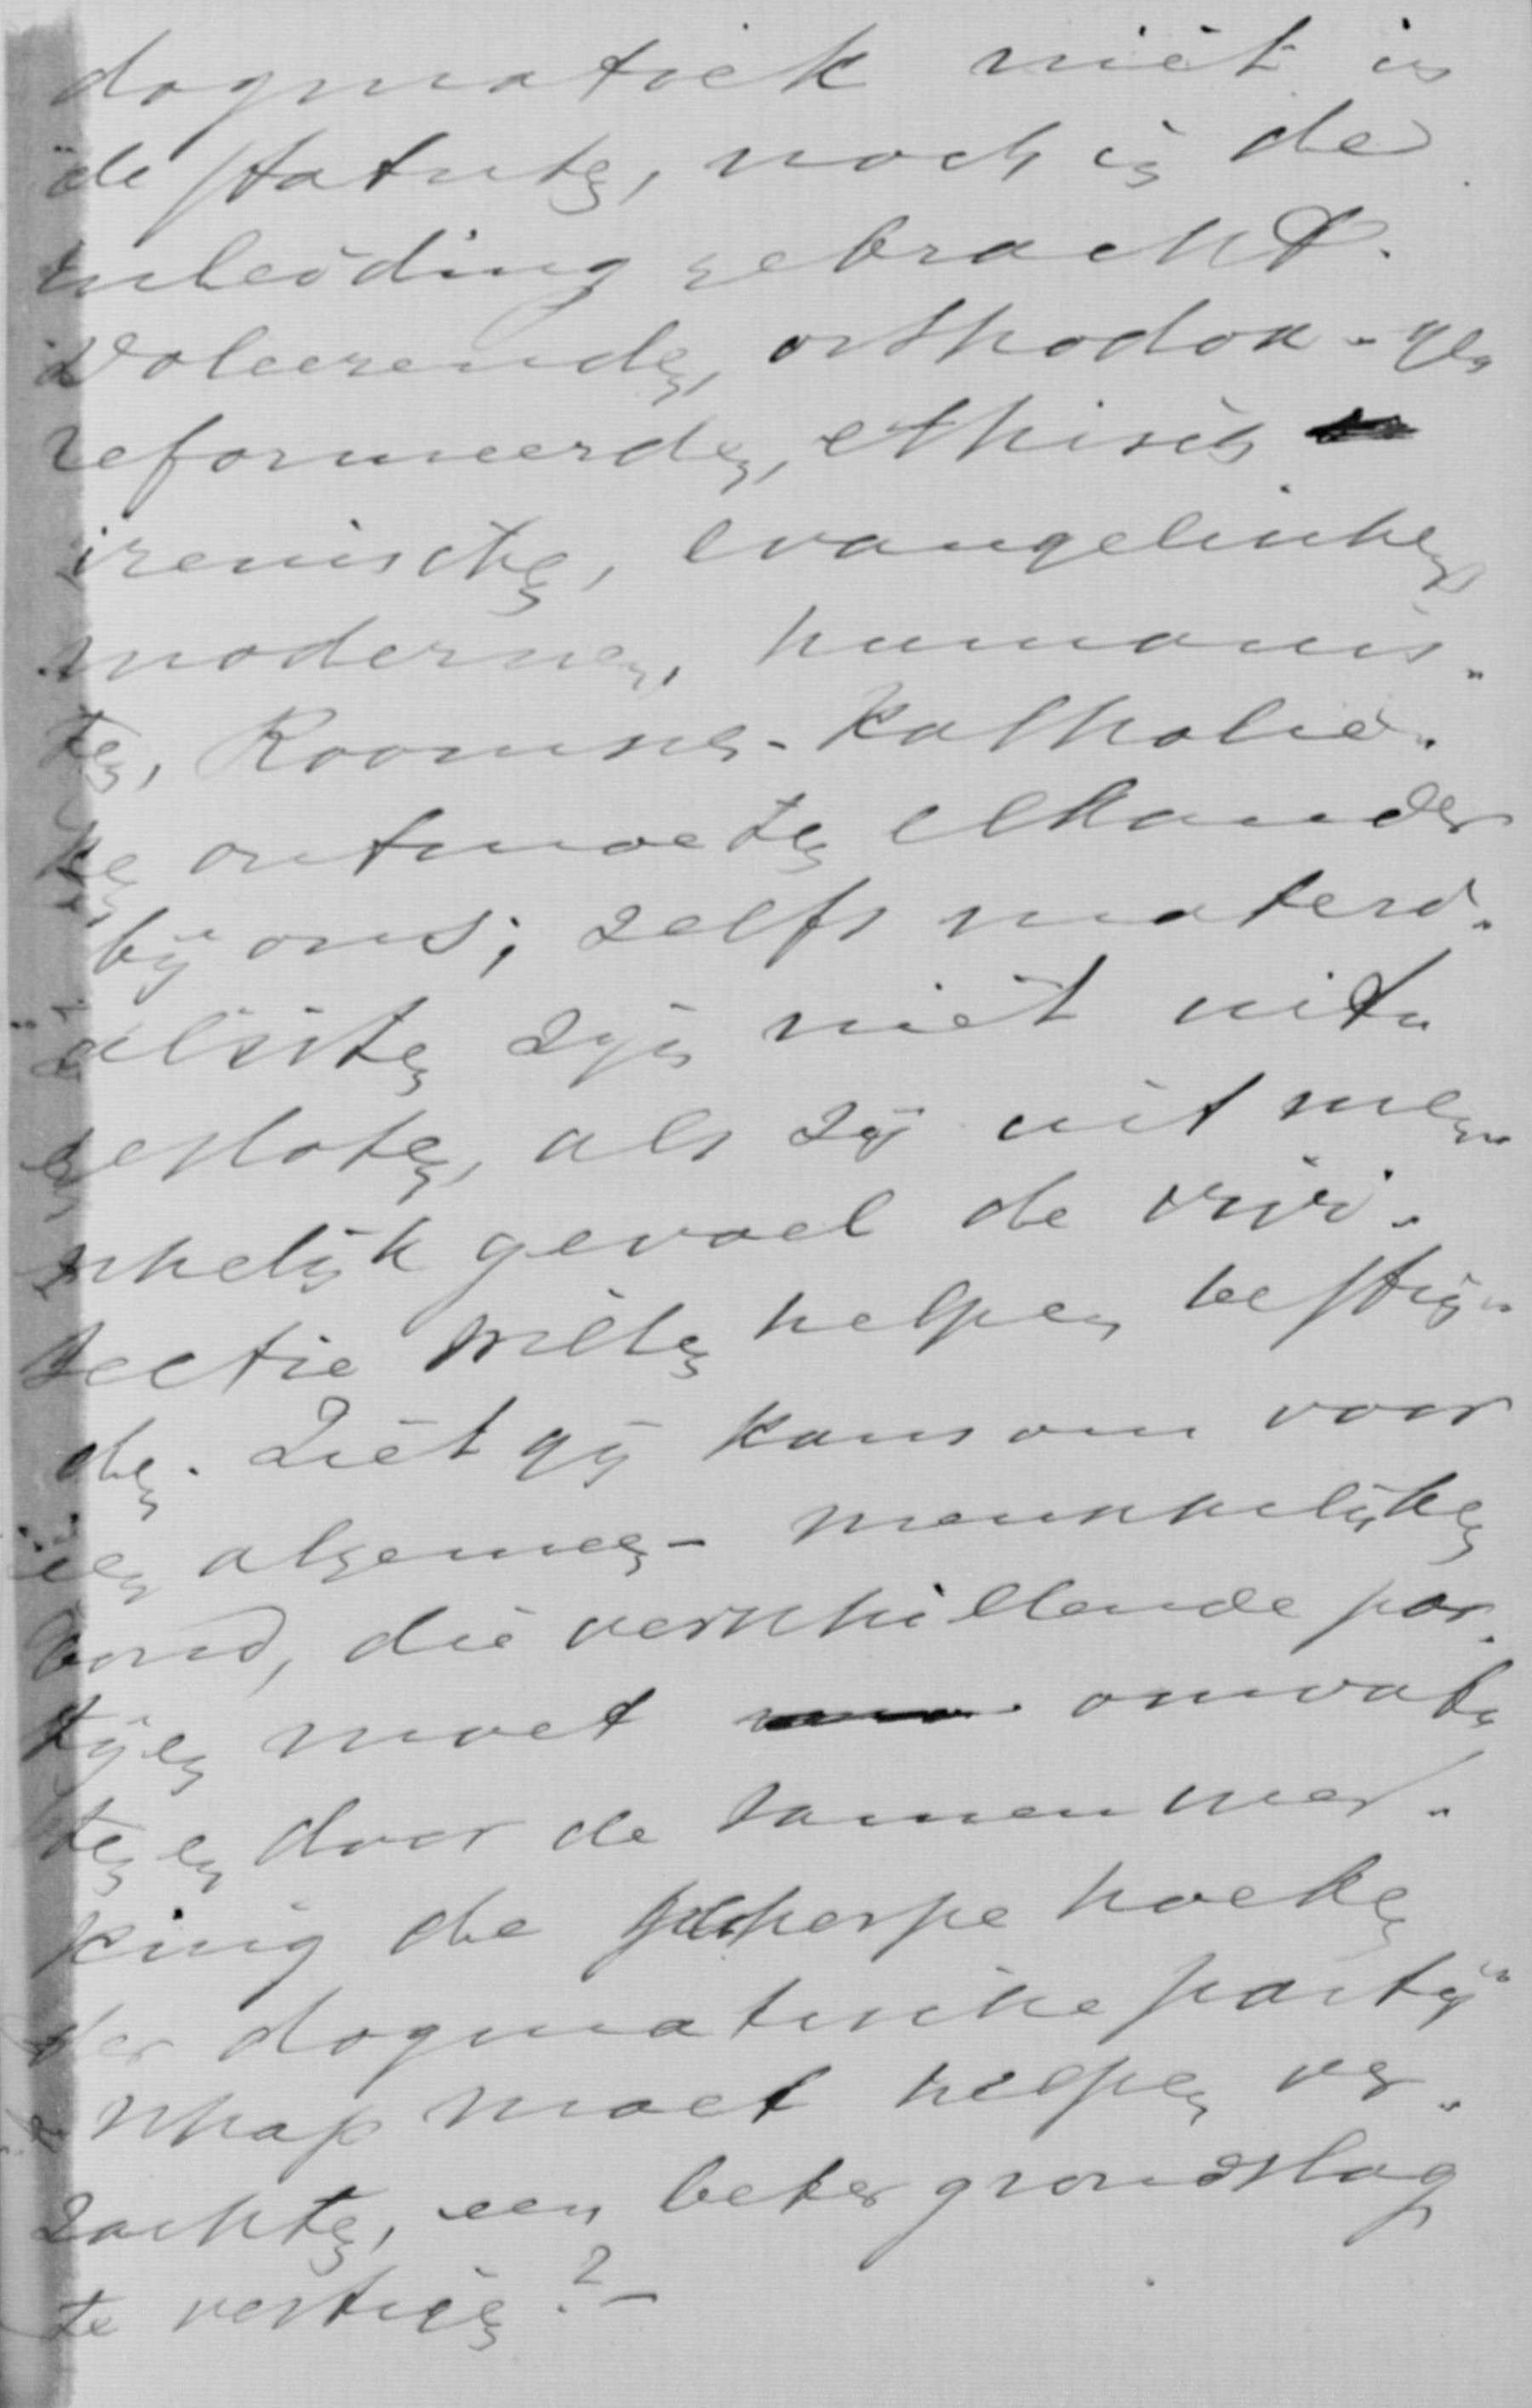 dogmatiek niet in
de statuten, noch in de
inleiding gebracht.
Doleerenden, orthodox-ge-
reformeerden, ethisch
irenischen, evangelischen
modernen, humanis-
ten, Roomsch-Katholie-
ken ontmoeten elkander
bij ons; zelfs materi-
alisten zijn niet uit-
gesloten, als zij uit men-
schelijk gevoel de vivi-
sectie willen helpen bestrij-
den. Ziet gij kans om voor
een algemeen-menschelijken
bond, die verschillende par-
tijen moet omvat-
ten en door de samenwer-
king de scherpe hoeken
der dogmatische partij-
schap moet helpen ver-
zachten, een beter grondslag
te vestigen?-